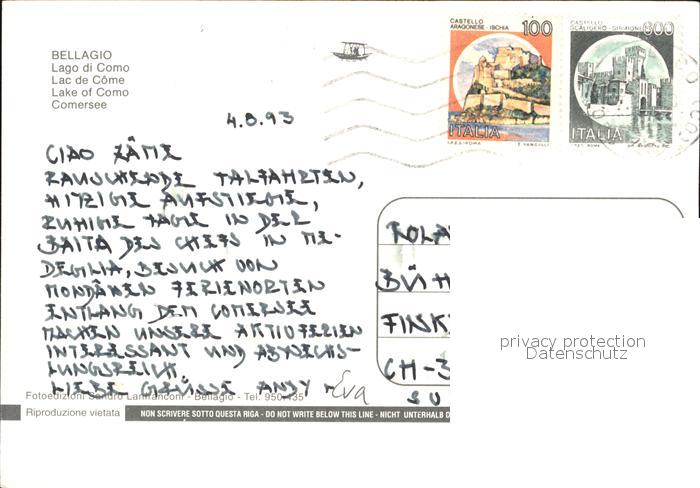 CASTELLO
ARAGONESE - ISCHIA 100
ITALIA
I.P.Z.S. ROMA E. VANGELLI
CASTELLO
SCALIGERO - SIRMIONE 600
ITALIA
BELLAGIO
Lago di Como
Lac de Côme
Lake of Como
Comersee
4.8.93
CIAO ZÄME
RAUSCHENDE TALFAHRTEN,
HITZIGE AUFSTIEGE,
RUHIGE TAGE IN DER
BAITA DES CHEFS IN ME-
DEGLIA, BESUCH VON
MONDÄNEN FERIENORTEN
ENTLANG DEM COMERSEE
MACHEN UNSERE AKTIVFERIEN
INTERESSANT UND ABWECHS-
LUNGSREICH.
LIEBE GRÜSSE ANDY + Eva
ROLA
BÜH
FINK
CH-3
SU
privacy protection
Datenschutz
Fotoedizioni Sandro Lanfranconi - Bellagio - Tel. 950.435
Riproduzione vietata NON SCRIVERE SOTTO QUESTA RIGA - DO NOT WRITE BELOW THIS LINE - NICHT UNTERHALB D